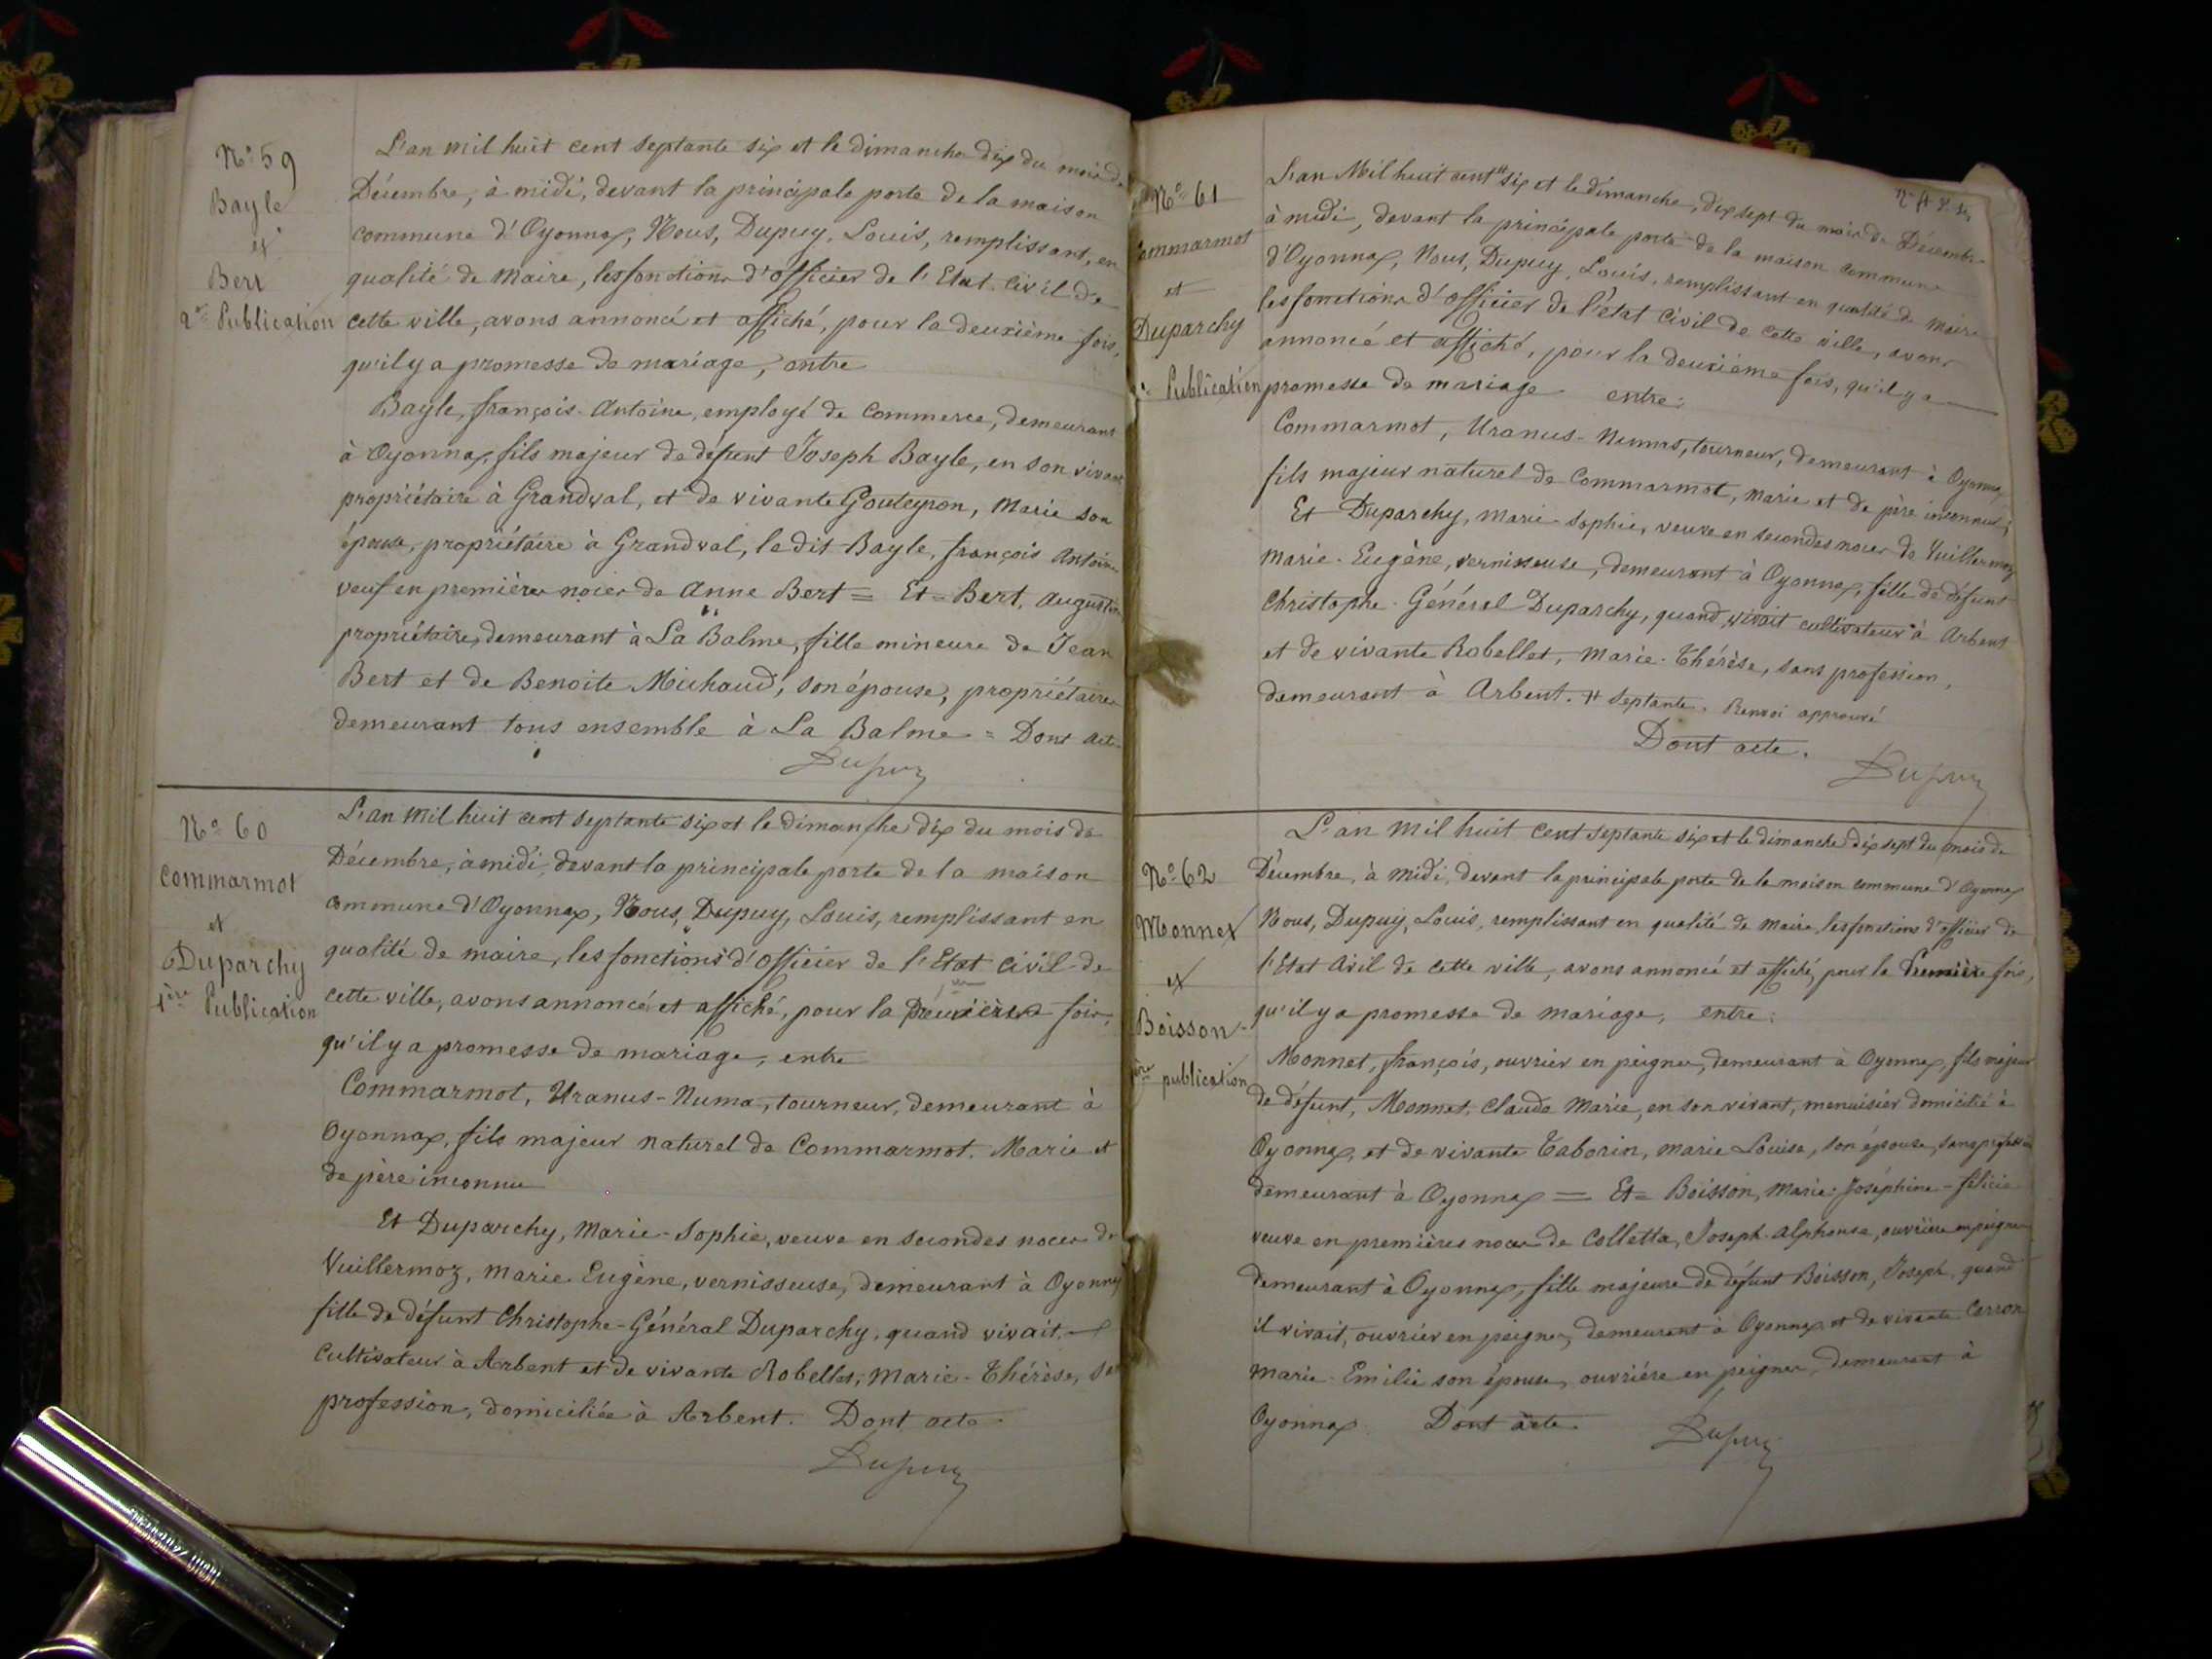 N° 59
Bayle
et
Bert
2e Publication
L'an mil huit cent septante six et le dimanche dix du mois de
Décembre, à midi, devant la principale porte de la maison
commune d'Oyonnax, Nous, Dupuy, Louis, remplissant, en
qualité de Maire, les fonctions d'officier de l'Etat civil de
cette ville, avons annoncé et affiché, pour la deuxième fois,
qu'il y a promesse de mariage, entre
Bayle, françois-Antoine, employé de Commerce, demeurant
à Oyonnax, fils majeur de défunt Joseph Bayle, en son vivant
propriétaire à Grandval, et de vivante Gouteyron, Marie son
épouse, propriétaire à Grandval, le dit Bayle, françois Antoine
veuf en premières noces de Anne Bert = Et = Bert, Augustine
propriétaire, demeurant à La Balme, fille mineure de Jean
Bert et de Benoite Michaud, son épouse, propriétaires
demeurant tous ensemble à La Balme = Dont acte
Dupuy
N° 60
Commarmot
et
Duparchy
1ère Publication
L'an mil huit cent septante six et le dimanche dix du mois de
Décembre, à midi, devant la principale porte de la maison
commune d'Oyonnax, Nous, Dupuy, Louis, remplissant en
qualité de maire, les fonctions d'officier de l'Etat civil de
cette ville, avons annoncé et affiché, pour la fois,
qu'il y a promesse de mariage, entre
Commarmot, Uranus-Numa, tourneur, demeurant à
Oyonnax, fils majeur naturel de Commarmot. Marie et
de père inconnu
Et Duparchy, Marie-Sophie, veuve en secondes noces de
Vuillermoz, Marie Eugène, vernisseuse, demeurant à Oyonnax
fille de défunt Christophe-Général Duparchy, quand vivait,
Cultivateur à Arbent et de vivante Robellet, Marie-Thérèse,
profession, domiciliée à Arbent. Dont acte
Dupuy
N° 61
Commarmot
et
Duparchy
Publication
L'an Mil huit cent # six et le dimanche, dix sept du mois de Décembre
à midi, devant la principale porte de la maison commune
d'Oyonnax, Nous, Dupuy, Louis, remplissant en qualité de Maire
les fonctions d'officier de l'état Civil de cette ville, avons
annoncé et affiché, pour la deuxième fois, qu'il y a
promesse de mariage entre:
Commarmot, Uranus-Numas, tourneur, demeurant à Oyonnax
fils majeur naturel de Commarmot, Marie et de père inconnu;
Et Duparchy, Marie-Sophie, veuve en secondes noces de Vuillermoz
Marie-Eugène, vernisseuse, demeurant à Oyonnax, fille de défunt
Christophe-Général Duparchy, quand vivait cultivateur à Arbent
et de vivante Robellet, Marie-Thérèse, sans profession,
demeurant à Arbent. # septante. Renvoi approuvé
Dont acte.
Dupuy
N° 62
Monnet
et
Boisson
1ère publication
L'an mil huit cent septante six et le dimanche dix sept du mois de
Décembre, à midi, devant la principale porte de la maison commune d'Oyonnax
Nous, Dupuy, Louis, remplissant en qualité de Maire les fonctions d'officier de
l'Etat civil de cette ville, avons annoncé et affiché, pour la Première fois,
qu'il y a promesse de mariage, entre:
Monnet, françois, ouvrier en peignes, demeurant à Oyonnax, fils majeur
de défunt, Monnet, Claude Marie, en son vivant, menuisier domicilié à
Oyonnax, et de vivante Taborin, Marie Louise, son épouse, sans profession
demeurant à Oyonnax = Et = Boisson, Marie-Joséphine-félicie
veuve en premières noces de Colletta, Joseph-Alphonse, ouvrière en peignes
demeurant à Oyonnax, fille majeure de défunt Boisson, Joseph, quand
il vivait, ouvrier en peignes, demeurant à Oyonnax et de vivante Carron
Marie-Emilie son épouse, ouvrière en peignes demeurant à
Oyonnax. Dont acte
Dupuy